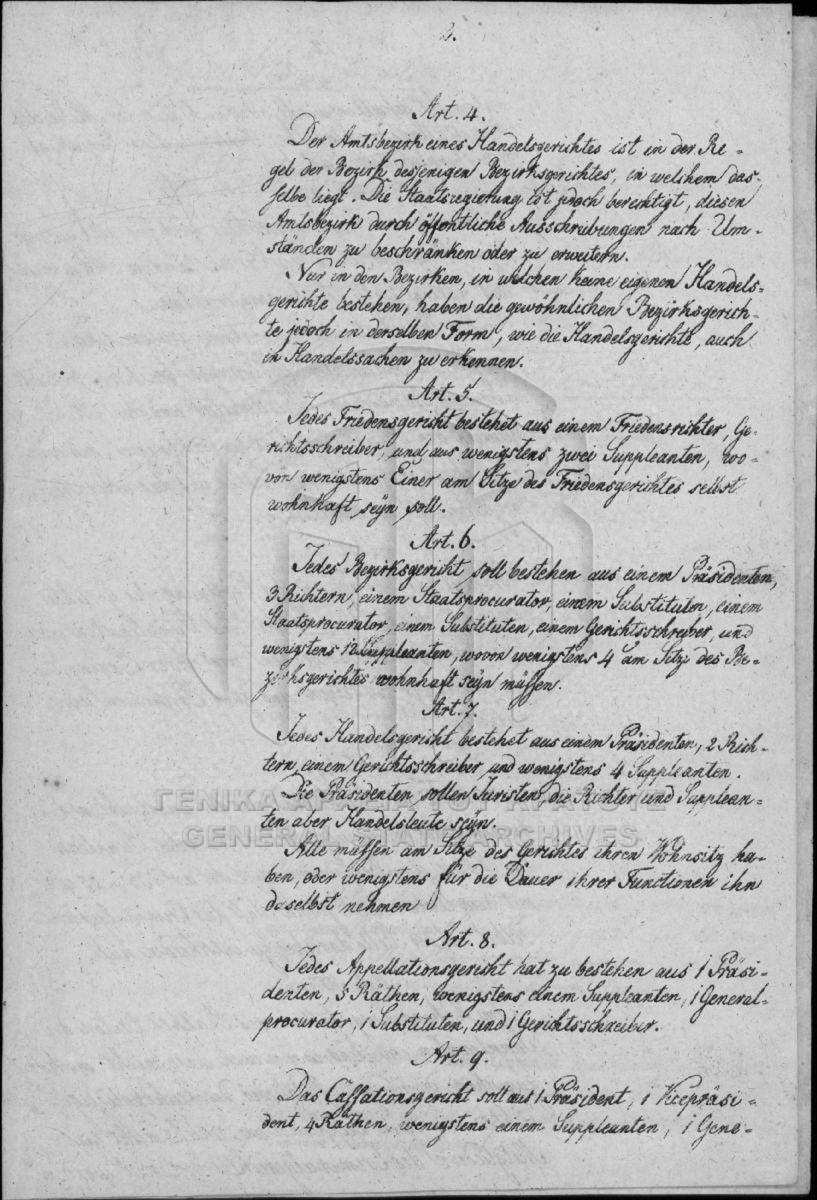 2.
Art. 4.
Der Amtsbezirk eines Handelsgerichtes ist in der Re-
gel der Bezirk desjenigen Bezirksgerichtes, in welchem das-
selbe liegt. Die Staatsregierung ist jedoch berechtigt, diesen
Amtsbezirk durch öffentliche Ausschreibungen nach Um-
ständen zu beschränken oder zu erweitern.
Nur in den Bezirken, in welchen keine eigenen Handels-
gerichte bestehen, haben die gewöhnlichen Bezirksgerich-
te jedoch in derselben Form, wie die Handelsgerichte, auch
in Handelssachen zu erkennen.
Art. 5.
Jedes Friedensgericht bestehet aus einem Friedensrichter, Ge-
richtsschreiber, und aus wenigstens zwei Suppleanten, wo-
von wenigstens Einer am Sitze des Friedensgerichtes selbst
wohnhaft seÿn soll.
Art. 6.
Jedes Bezirksgericht soll bestehen aus einem Präsidenten,
3 Richtern, einem Staatsprocurator, einem Substituten, einem
Staatsprocurator, einem Substituten, einem Gerichtsschreiber, und
wenigstens 12 Suppleanten, wovon wenigstens 4 am Sitze des Be-
zirksgerichtes wohnhaft seÿn müssen.
Art. 7.
Jedes Handelsgericht bestehet aus einem Präsidenten, 2 Rich-
tern, einem Gerichtsschreiber und wenigstens 4 Suppleanten.
Die Präsidenten sollen Juristen, die Richter und Supplean-
ten aber Handelsleute seÿn.
ΓΕΝΙΚΑ ΑΡΧΕΙΑ ΤΟΥ ΚΡΑΤΟΥΣ
GENERAL STATE ARCHIVES
Alle müssen am Sitze des Gerichtes ihren Wohnsitz ha-
ben, oder wenigstens für die Dauer ihrer Functionen ihn
daselbst nehmen
Art. 8.
Jedes Appellationsgericht hat zu bestehen aus 1 Präsi-
denten, 5 Räthen, wenigstens einem Suppleanten, 1 General-
procurator, 1 Substituten, und 1 Gerichtsschreiber.
Art. 9.
Das Cassationsgericht soll aus 1 Präsident, 1 Vicepräsi-
dent, 4 Räthen, wenigstens einem Suppleanten, 1 Gene-